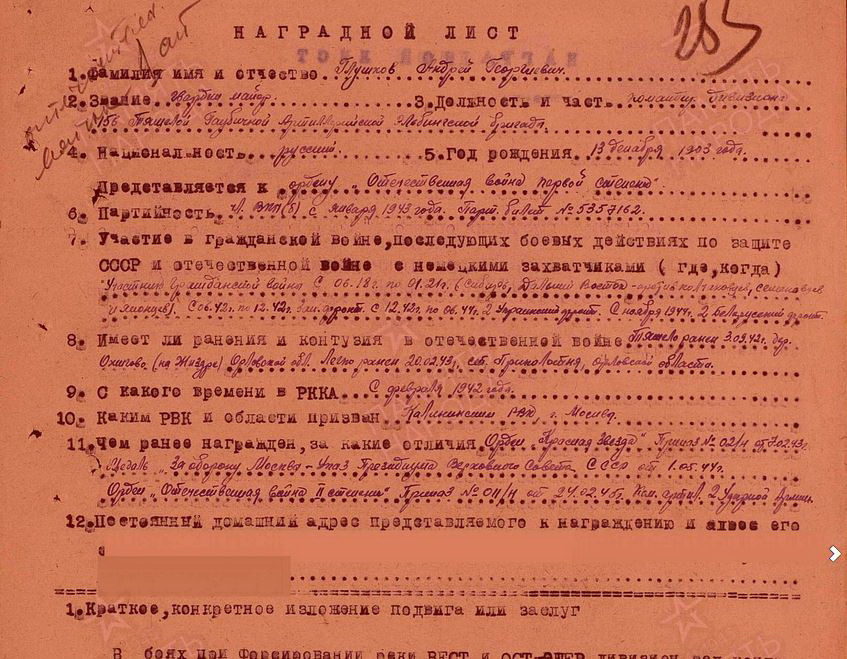 НАГРАДНОЙ ЛИСТ
285
1. Фамилия имя и отчество Глушков Андрей Георгиевич.
2. Звание гвардии майор. 3. Должность и часть командир дивизиона
Тяжелой Гаубичной Артиллерийской бригады
4. Национальность русский. 5. Год рождения 13 декабря 1903 года.
Представляется к ордену „Отечественная война первой степени"
6. Партийность чл. ВКП(б) с января 1943 года. Парт. билет № 5357162.
7. Участие в гражданской войне, последующих боевых действиях по защите
СССР и отечественной войне с немецкими захватчиками ( где, когда )
Участник гражданской войны с 06.18г. по 01.21г. (Сибирь, Дальний Восток - против колчаковцев, семеновцев
и японцев). С 06.42г. по 12.42г. Зап. фронт. С 12.42г. по 06.44г. 2 Украинский фронт. С ноября 1944г. 2 Белорусский фронт.
8. Имеет ли ранения и контузия в отечественной войне Тяжело ранен 3.09.42г. дер.
(на Жиздре) Орловской обл. Легко ранен 20.02.43г. Орловской области.
9. С какого времени в РККА С февраля 1942 года.
10. Каким РВК и области призван Калининским РВК, г. Москва.
11. Чем ранее награжден, за какие отличия Орден „Красная Звезда" Приказ № 02/н от 7.02.43г.
Медаль „За оборону Москвы - Указ Президиума Верховного Совета СССР от 1.05.44г.
Орден „Отечественная война II степени" Приказ № 011/н от 24.02.45г. Ком. артил. 2 Ударной Армии.
12. Постоянный домашний адрес представляемого к награждению и адрес его
1. Краткое, конкретное изложение подвига или заслуг
В боях при форсировании реки ВЕСТ и ОСТ-